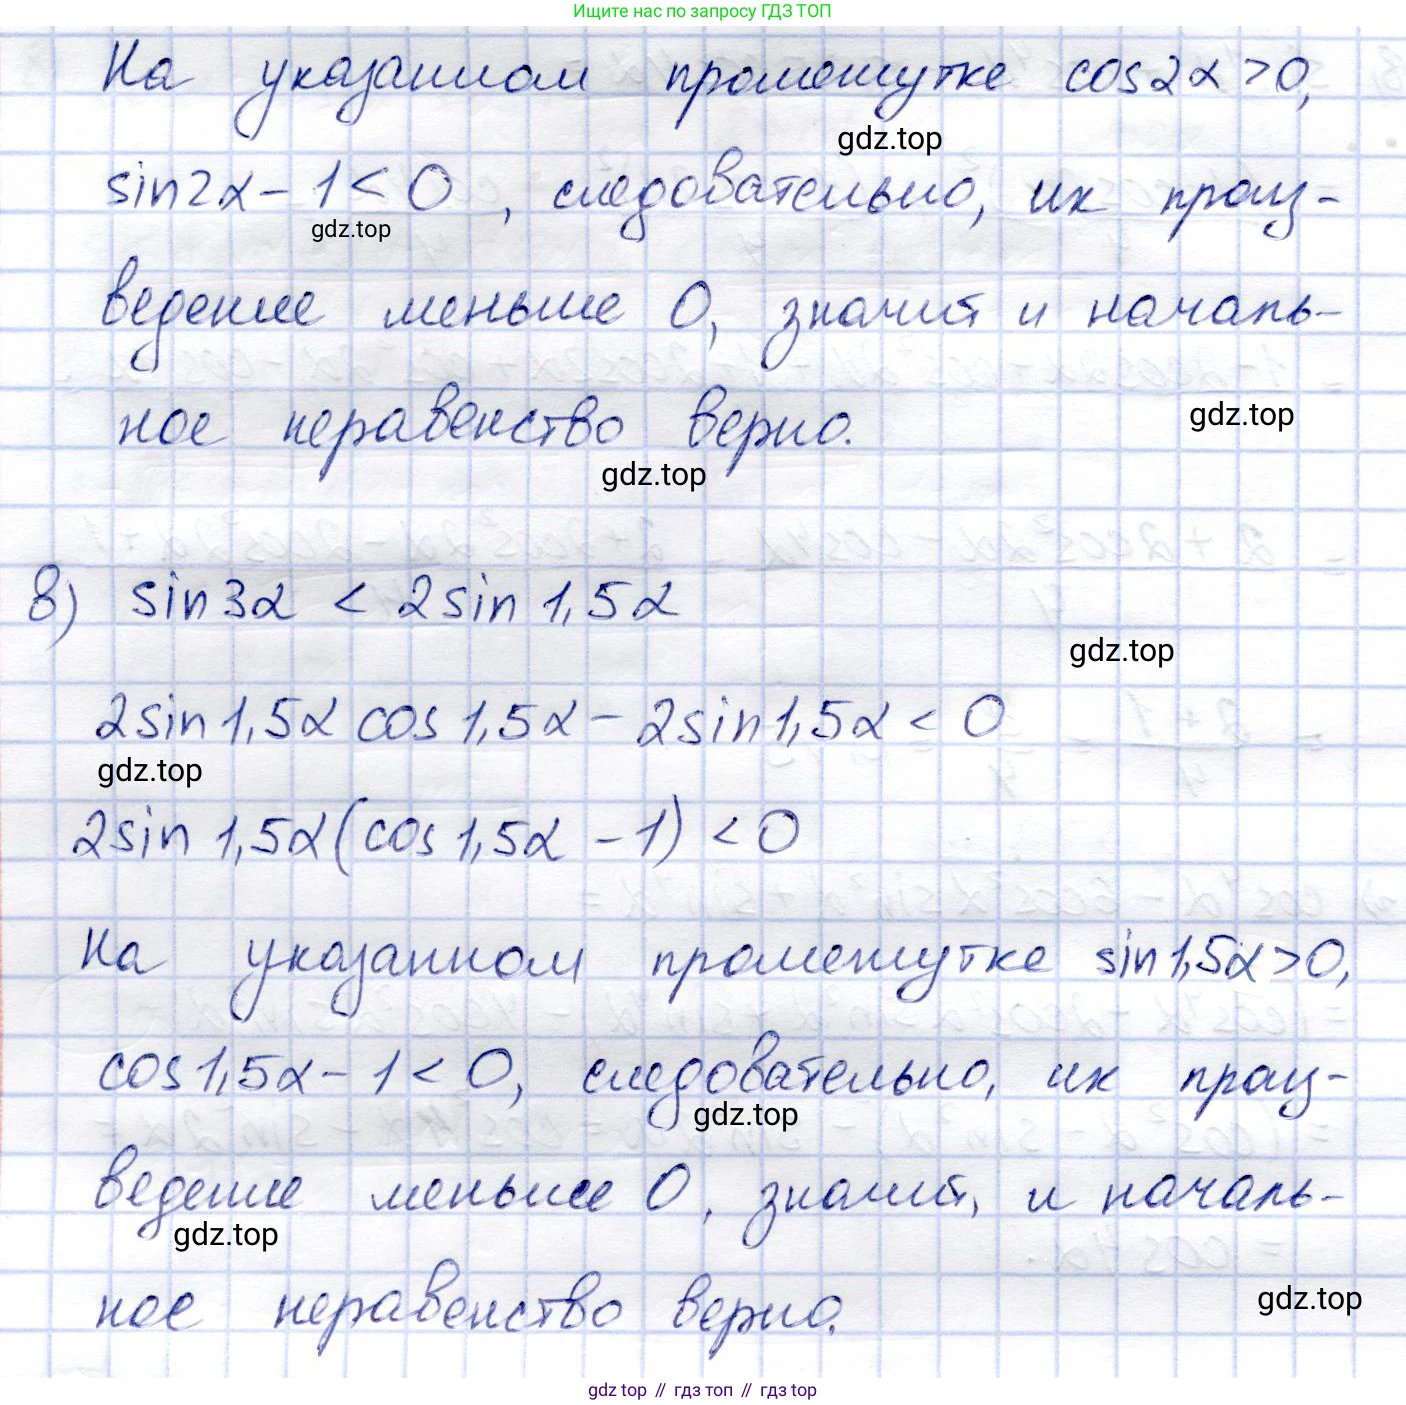 Ищите нас по запросу ГДЗ ТОП
На указанном промежутке cos2α>0,
gdz.top
sin2α-1<0, следовательно, их произ-
gdz.top
ведение меньше 0, значит и началь-
ное неравенство верно.
gdz.top
gdz.top
в) sin3α < 2sin1,5α
gdz.top
2sin1,5α cos1,5α - 2sin1,5α < 0
gdz.top
2sin1,5α(cos1,5α - 1) < 0
На указанном промежутке sin1,5α>0,
cos1,5α-1<0, следовательно, их произ-
gdz.top
ведение меньше 0, значит, и началь-
gdz.top
ное неравенство верно.
gdz.top
gdz top // гдз топ // gdz top